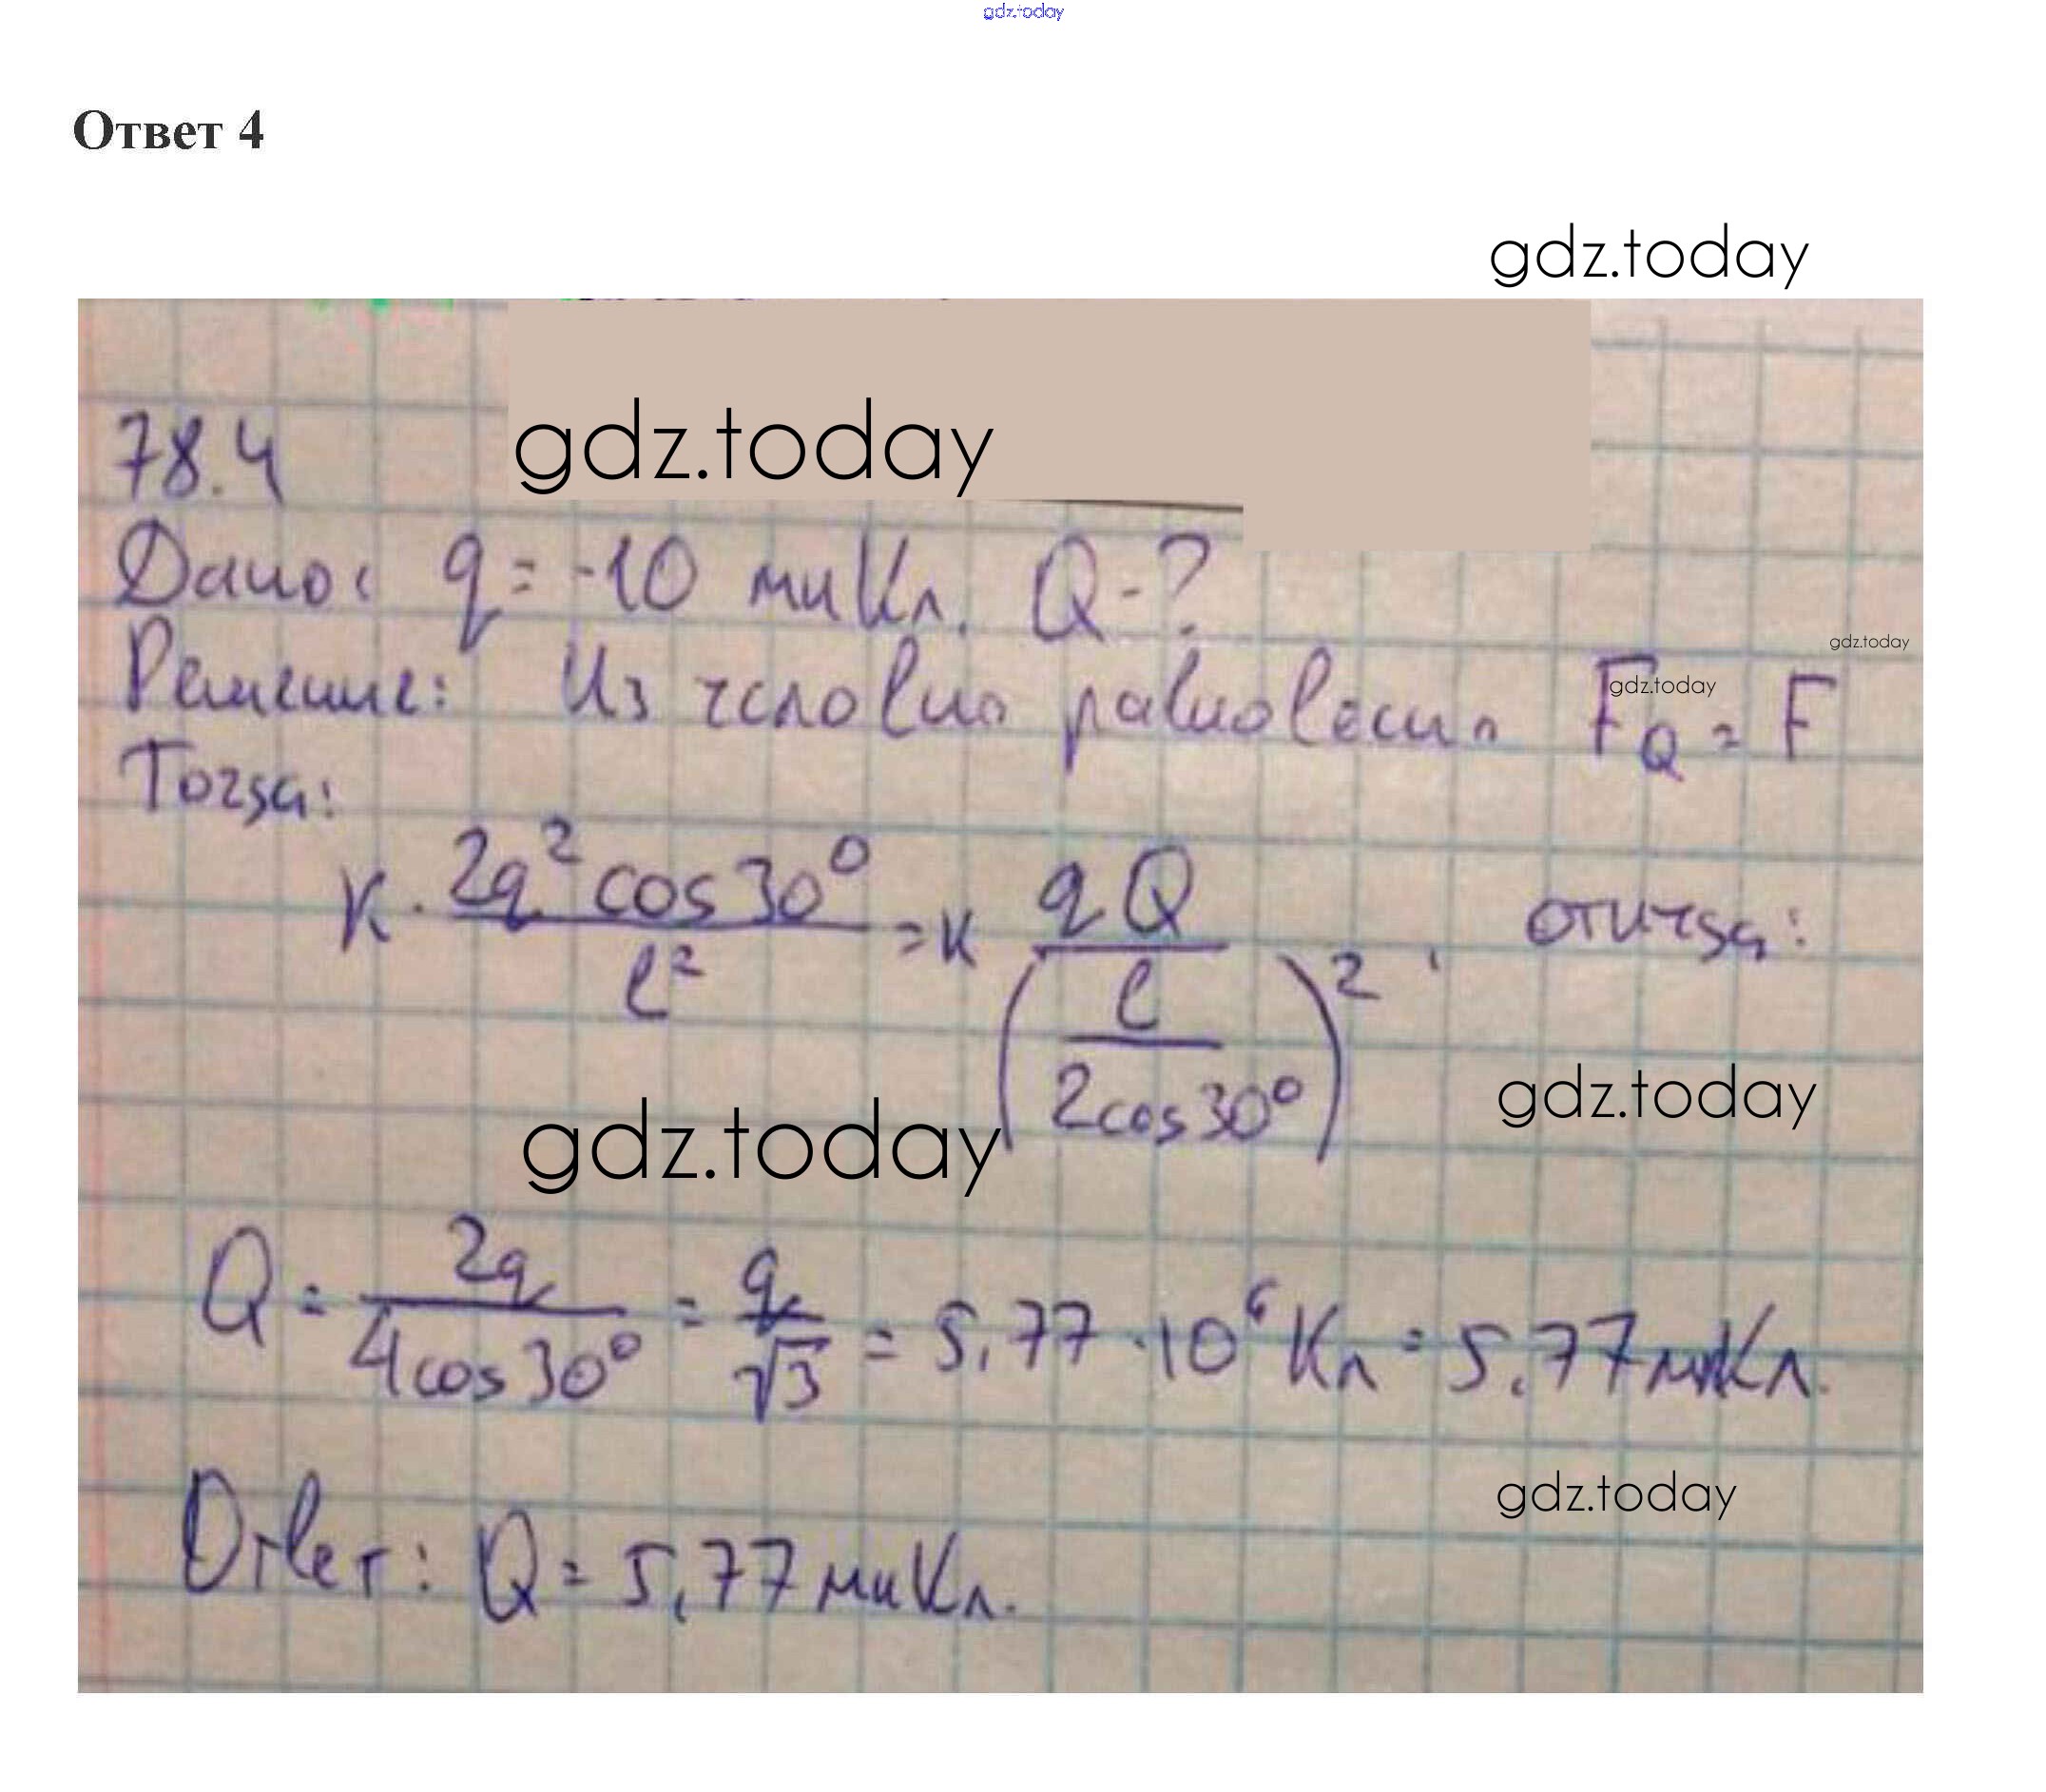 gdz.today
Ответ 4
gdz.today
gdz.today
78.4
Дано: q = -10 мкКл. Q - ?
gdz.today
Решение: Из условия равновесия F_Q = F
gdz.today
Тогда:
K · 2q² cos 30° / l² = K qQ / (l / 2cos30°)², откуда:
gdz.today
gdz.today
Q = 2q / 4cos30° = q / √3 = 5,77 · 10⁶ Кл = 5,77 мкКл.
gdz.today
Ответ: Q = 5,77 мкКл.